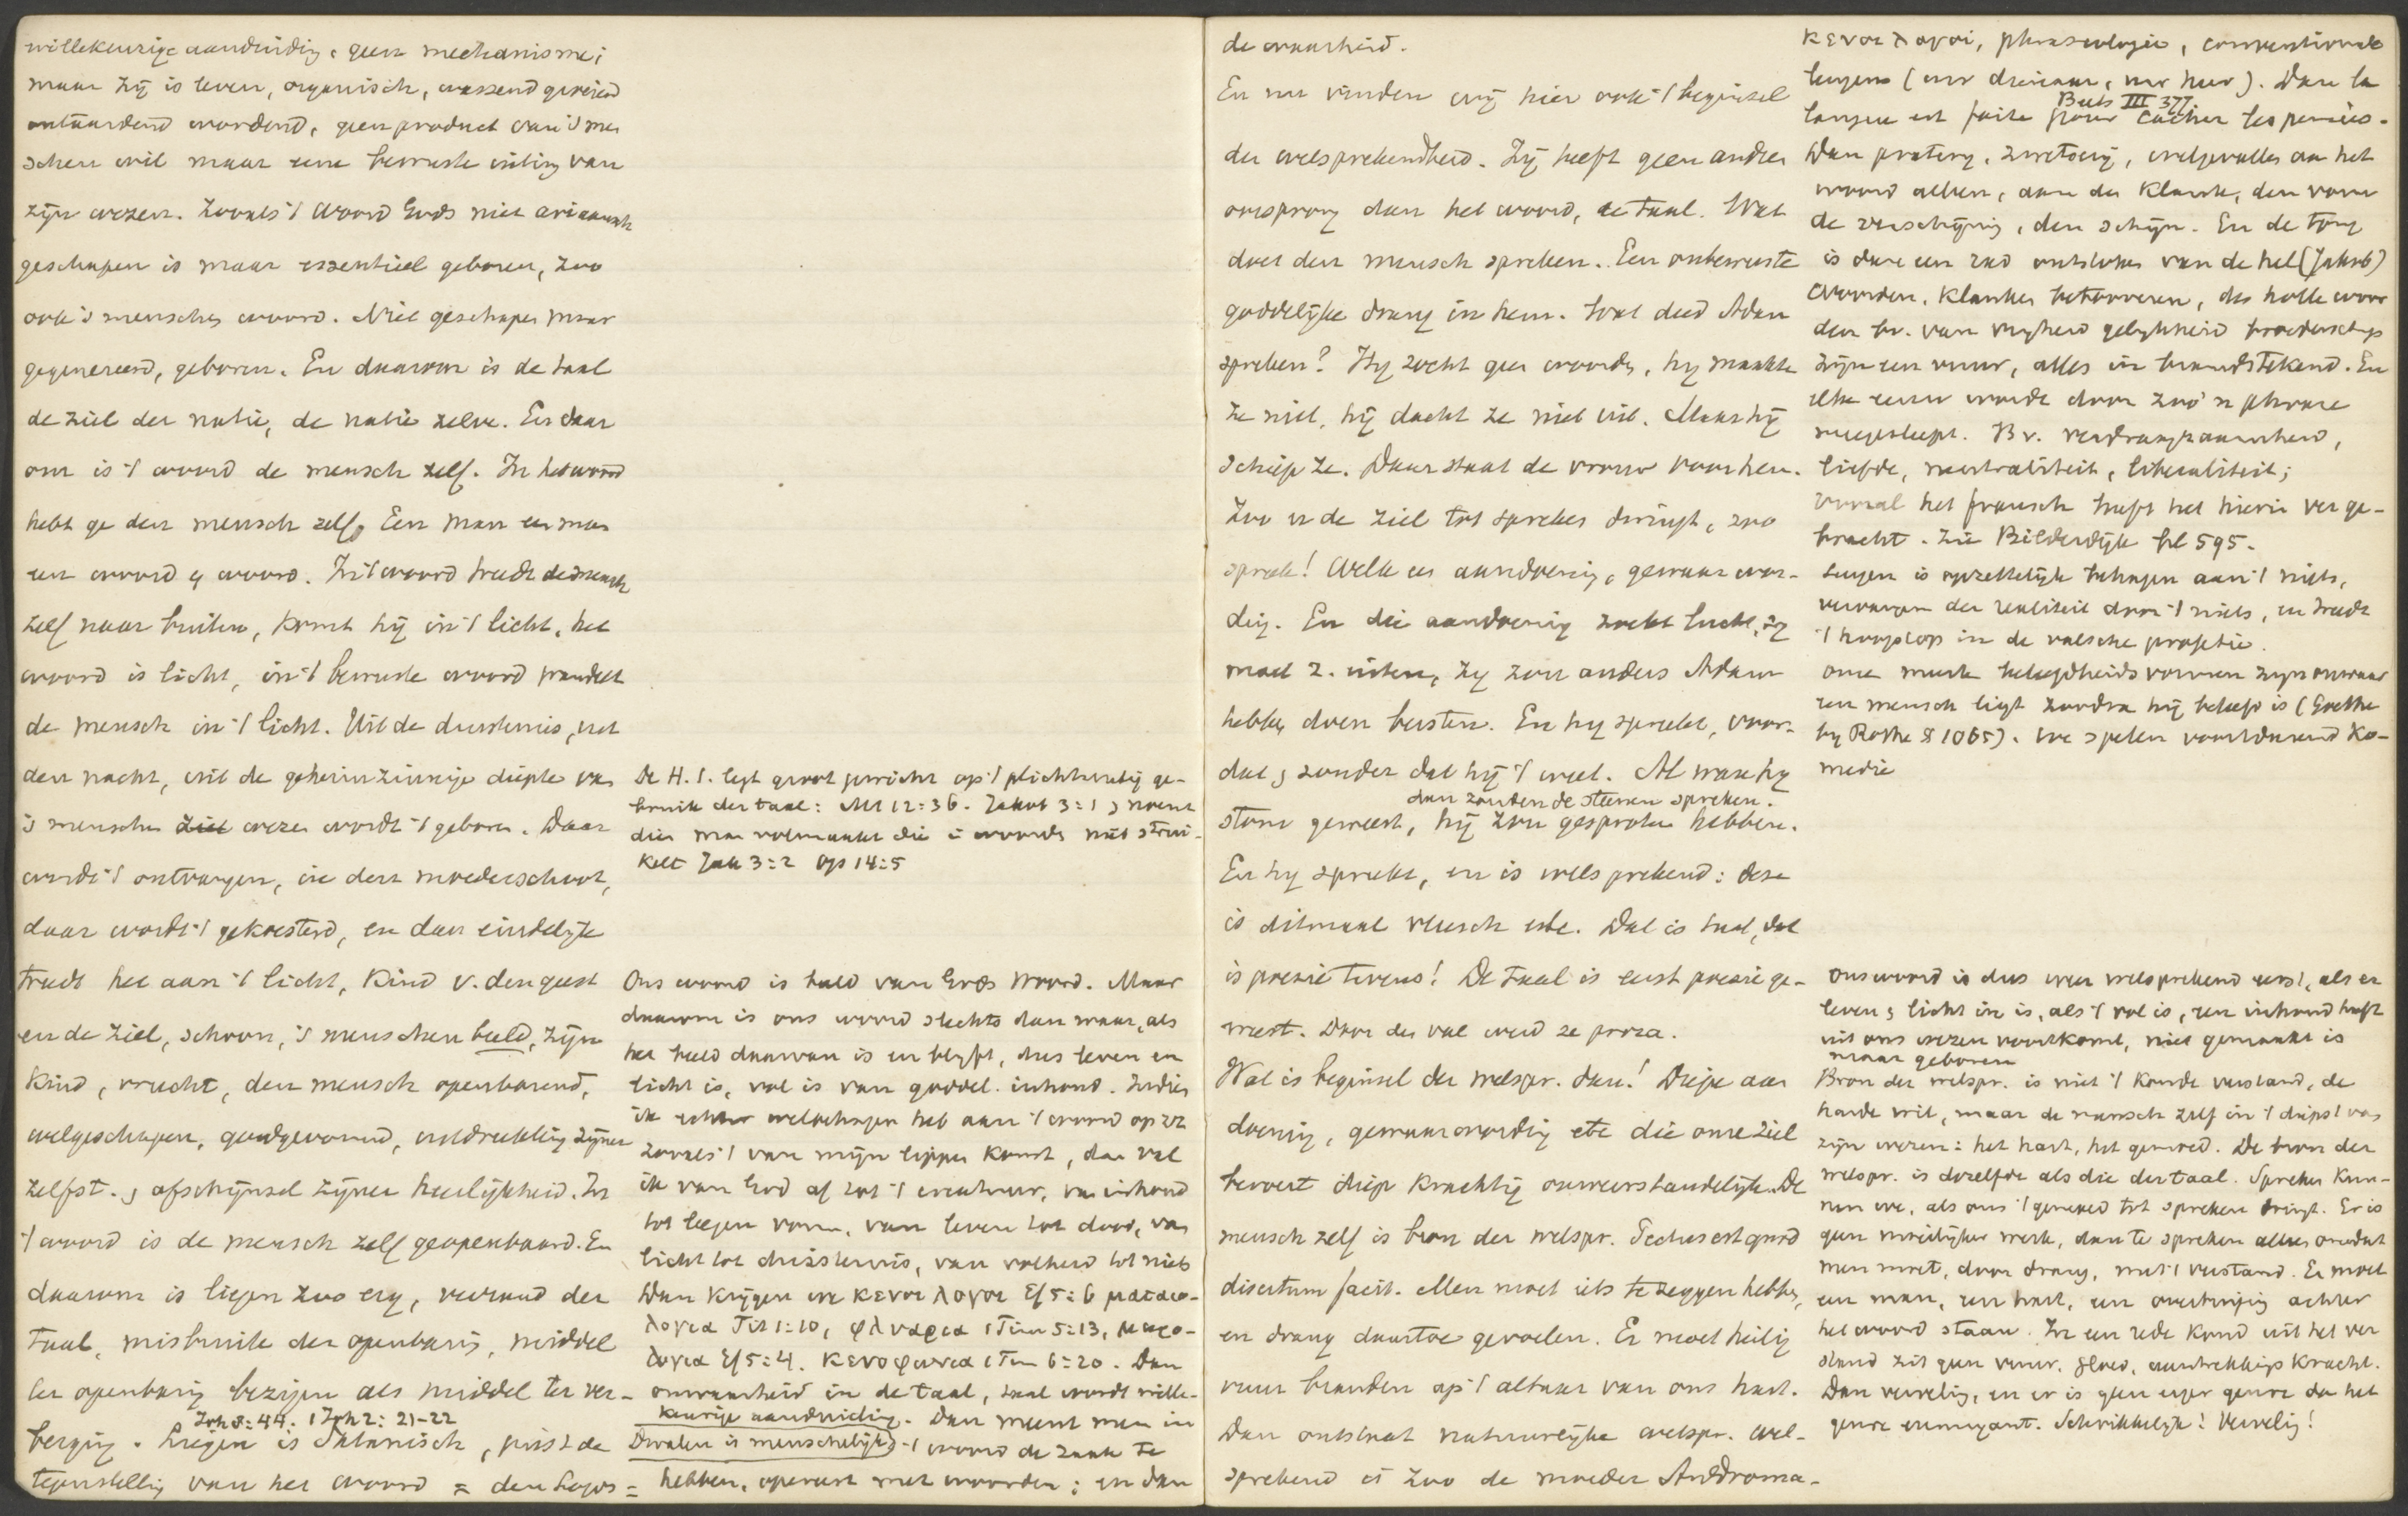 willekeurige aanduiding, geen mechanisme;
maar zij is leven, organisch, wassend groeiend
ontaardend wordend, geen product van 's men
schen wil maar eene bewuste uiting van
zijn wezen. Zooals 't Woord Gods niet ariaansch
geschapen is maar essentieel geboren, zoo
ook 's menschen woord. Niet geschapen maar
gegenereerd, geboren. En daarom is de taal
de ziel der natie, de natie zelve. En daar
om is 't woord de mensch zelf. In het woord
hebt ge den mensch zelf. Een man een man
een woord een woord. In 't woord treedt de mensch
zelf naar buiten, komt hij in 't licht, het
woord is licht, in 't bewuste woord wandelt
de mensch in 't licht. Uit de duisternis, uit
den nacht, uit de geheimzinnige diepte van
's menschen ziel wezen wordt 't geboren. Daar
wordt 't ontvangen, in den moederschoot,
daar wordt 't gekoesterd, en dan eindelijk
treedt het aan 't licht, kind v. den geest
en de ziel, schoon, 's menschen beeld, zijn
kind, vrucht, den mensch openbarend,
welgeschapen, goedgevormd, uitdrukking zijner
zelfst. en afschijnsel zijner heerlijkheid. In
't woord is de mensch zelf geopenbaard. En
daarom is liegen zoo erg, verraad der
taal, misbruik der openbaring, middel
ter openbaring bezigen als middel ter ver-
Joh 8:44. 1 Joh 2: 21-22
berging. Liegen is Satanisch, juist de
tegenstelling van het woord = den Logos =
De H. S. legt groot gewicht op 't plichtmatig ge-
bruik der taal: Mt 12:36. Jakob 3:1 en noemt
dien man volmaakt die in woorden niet strui-
kelt Jak 3:2 Op 14:5
Ons woord is beeld van Gods Woord. Maar
daarom is ons woord slechts dan waar, als
het beeld daarvan is en blijft, dus leven en
licht is, vol is van goddel. inhoud. Indien
ik echter welbehagen heb aan 't woord op zz
zooals 't van mijn lippen komt, dan val
ik van God af tot 't creatuur, van inhoud
tot leegen vorm, van leven tot dood, van
licht tot duisternis, van volheid tot niets
Dan krijgen we κενοι λογοι Ef 5:6 ματαιο-
λογια Tit 1:10, φλυαρια 1 Tim 5:13, μωρο-
λογια Ef 5:4. κενοφωνια 1 Tim 6:20. Dan
onwaarheid in de taal, taal wordt wille-
keurige aanduiding. Dan meent men in
Dwalen is menschelijk) 't woord de zaak te
hebben, opereert met woorden; en dan
de waarheid.
En nu vinden wij hier ook 't beginsel
der welsprekendheid. Zij heeft geen andren
oorsprong dan het woord, de taal. Wat
doet den mensch spreken. Een onbewuste
goddelijke drang in hem. Wat deed Adam
spreken? Hij zocht geen woorden, hij maakte
ze niet, hij dacht ze niet uit. Maar hij
schiep ze. Daar staat de vrouw voor hem.
Zoo en de ziel tot spreken dringt, zoo
sprak! Welk een aandoening, gewaarwor-
ding. En die aandoening zoekt lucht, zij
moet z. uiten, zij zou anders Adam
hebben doen barsten. En hij spreekt, voor-
dat, zonder dat hij 't weet. Al ware hij
dan zouden de steenen spreken.
stom geweest, hij zou gesproken hebben.
En hij spreekt, en is welsprekend: deze
is ditmaal vleesch etc. Dat is taal, dat
is poezie tevens! De taal is eerst poezie ge-
weest. Door den val werd ze proza.
Wat is beginsel der welspr. dan! Diepe aan
doening, gewaarwording etc die onze ziel
beroert diep krachtig onweerstandelijk. De
mensch zelf is bron der welspr. Pectus est quod
disertum facit. Men moet iets te zeggen hebben,
en drang daartoe gevoelen. Er moet heilig
vuur branden op 't altaar van ons hart.
Dan ontstaat natuurlijke welspr. Wel-
sprekend is zoo de moeder Androma-
κενοι λογοι, phraseologie, conventioneele
leugens (uw dienaar, uw heer). Dan la
Bets III 377.
langue est faite pour cacher les pensées.
Dan praterij, zwetserij, welgevallen aan het
woord alleen, aan den klank, den vorm
de verschijning, den schijn. En de tong
is dan een rad ontstoken van de hel (Jakob)
Woorden, klanken betooveren, die holle woor
den bv. van vrijheid gelijkheid broederschap
zijn een vuur, alles in brandstekend. En
elke eeuw wordt door zoo'n phrase
meegesleept. Bv. verdraagzaamheid,
liefde, neutraliteit, liberaliteit;
vooral het fransch heeft het hierin ver ge-
bracht. Zie Bilderdijk bl 595.
Leugen is opzettelijk behagen aan 't niets,
vervangen der realiteit door 't niets, en treedt
't hoogst op in de valsche profetie.
onze meeste beleefdheidsvormen zijn onwaar
een mensch liegt zoodra hij beleefd is (Goethe
bij Rothe § 1065). We spelen voortdurend ko-
medie
Ons woord is dus weer welsprekend eerst, als er
leven en licht in is, als 't vol is, een inhoud heeft
uit ons wezen voortkomt, niet gemaakt is
maar geboren
Bron der welspr. is niet 't koude verstand, de
harde wil, maar de mensch zelf in 't diepst van
zijn wezen: het hart, het gemoed. De bron der
welspr. is dezelfde als die der taal. Spreken kun-
nen we, als ons 't gemoed tot spreken dringt. Er is
geen moeilijker werk, dan te spreken alleen omdat
men moet, door drang, met 't verstand. Er moet
een man, een hart, een overtuiging achter
het woord staan. In een rede komt uit het ver
stand zit geen vuur, gloed, aantrekkings kracht.
Dan vervelig, en er is geen erger genre dan het
genre ennuyant. Schrikkelijk! Vervelig!